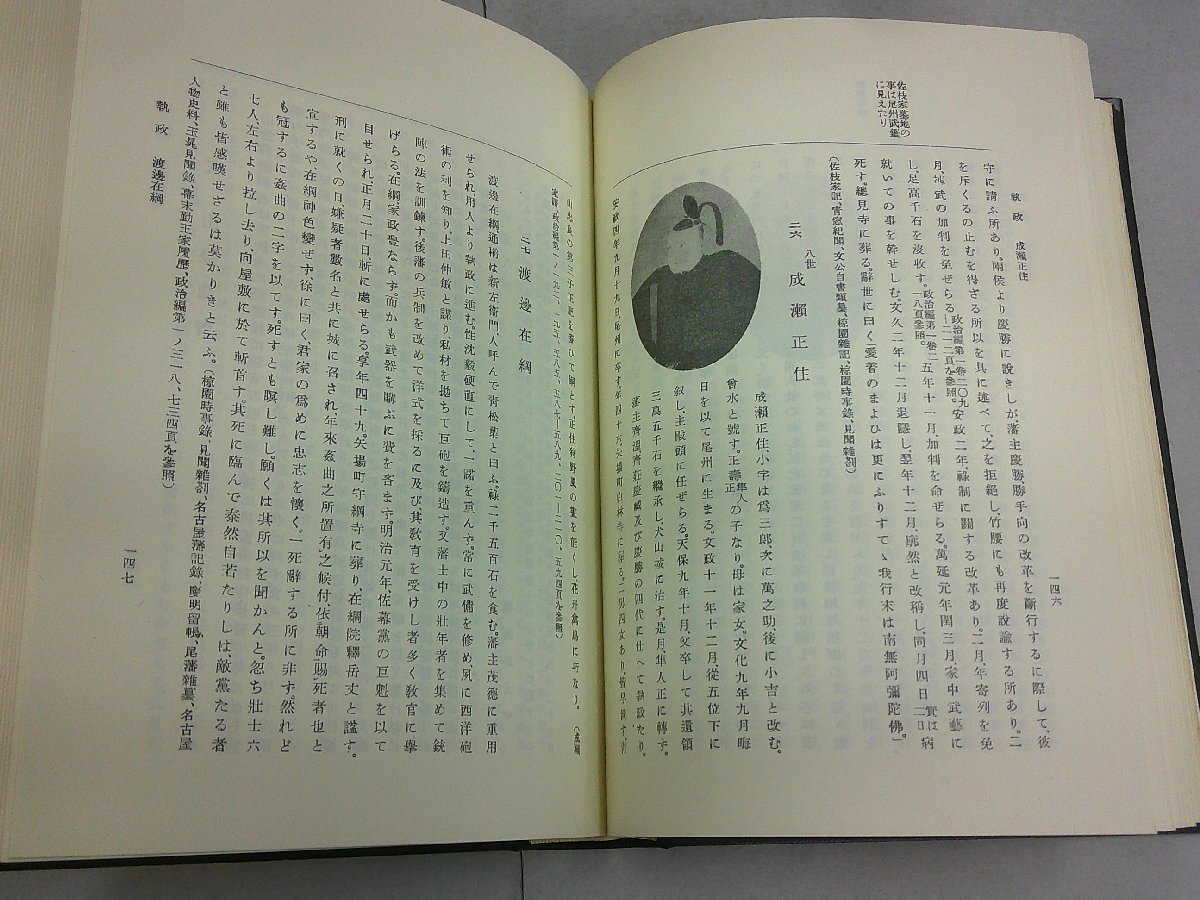 佐枝家墓地の
事は尾州武鑑
に見えたり
執政 成瀨正住
一四六
守に請ふ所あり。兩侯より慶勝に說きしが、藩主慶勝、勝手向の改革を斷行するに際して、彼
を斥くるの止むを得ざる所以を具に述べて、之を拒絕し、竹腰にも再度說諭する所あり。二
月、地武の加判を免ぜらる。政治編第一卷二〇九―二一二頁を參照。安政二年、祿制に關する改革あり。二月、年寄列を免
し、足高千石を沒收す。政治編第一卷二五―一八頁參照。年十一月加判を命ぜらる。萬延元年閏三月家中武藝に
就いての事を幹せしむ。文久二年十二月退隱し、翌年十二月廓然と改稱し、同月四日實は二日病
死す。總見寺に葬る。辭世に曰く、愛着のまよひは更にふりすてゝ我行末は南無阿彌陀佛。
(佐枝家記、靑窓紀聞、文公自書類纂、椋園雜記、椋園時事錄、見聞雜劄)
二六 八世 成瀨正住
成瀨正住、小字は爲三郞、次に萬之助、後に小吉と改む。
曾水と號す。正壽隼人正の子なり。母は家女。文化九年九月晦
日を以て尾州に生まる。文政十一年十二月、從五位下に
叙し、主殿頭に任ぜらる。天保九年十月、父卒して其遺領
三萬五千石を繼承し、犬山城に治す。是月、隼人正に轉ず。
藩主齊溫、齊莊、慶臧及び慶勝の四代に仕へて執政たり。
安政四年九月十九日、尾州に卒す。年四十六。矢場町白林寺に葬る。一男四女あり、皆早世す。
二七 渡邊在綱
渡邊在綱、通稱は新左衞門、人呼んで靑松葉と曰ふ。祿二千五百石を食む。藩主茂德に重用
せられ、用人より執政に進む。性沈毅硬直にして、一諾を重んず。常に武備を修め、夙に西洋砲
術の利を知り、上田仲敏と謀り、私材を拋ちて巨砲を鑄造す。又藩士中の壯年者を集めて銃
陣の法を訓鍊す。後藩の兵制を改めて洋式を採るに及び、其敎育を受けし者多く敎官に擧
げらる。在綱、家政豐ならず。而かも武器を購ふに費を吝まず。明治元年、佐幕黨の巨魁を以て
目せられ、正月二十日斬に處せらる。享年四十九。矢場町守綱寺に葬り、在綱院釋岳丈と謚す。
刑に就くの日、嫌疑者數名と共に城に召され、年來姦曲之所置有之候付、依朝命賜死者也と
宣するや、在綱神色變ぜず、徐に曰く、君家の爲めに忠志を懷く。一死辭する所に非ず。然れど
も冠するに姦曲の二字を以てす、死すとも瞑し難し。願くは其所以を聞かんと。忽ち壯士六
七人、左右より拉し去り、向屋敷に於て斬首す。其死に臨んで泰然自若たりしは、敵黨たる者
と雖も皆感嘆せざるは莫かりきと云ふ。(椋園時事錄、見聞雜劄、名古屋藩記錄、慶明留帳、尾藩雜纂、名古屋
人物史料、玉晁見聞錄、幕末勤王家履歷、政治編第一ノ三一八、七三四頁を參照)
執政 渡邊在綱
一四七